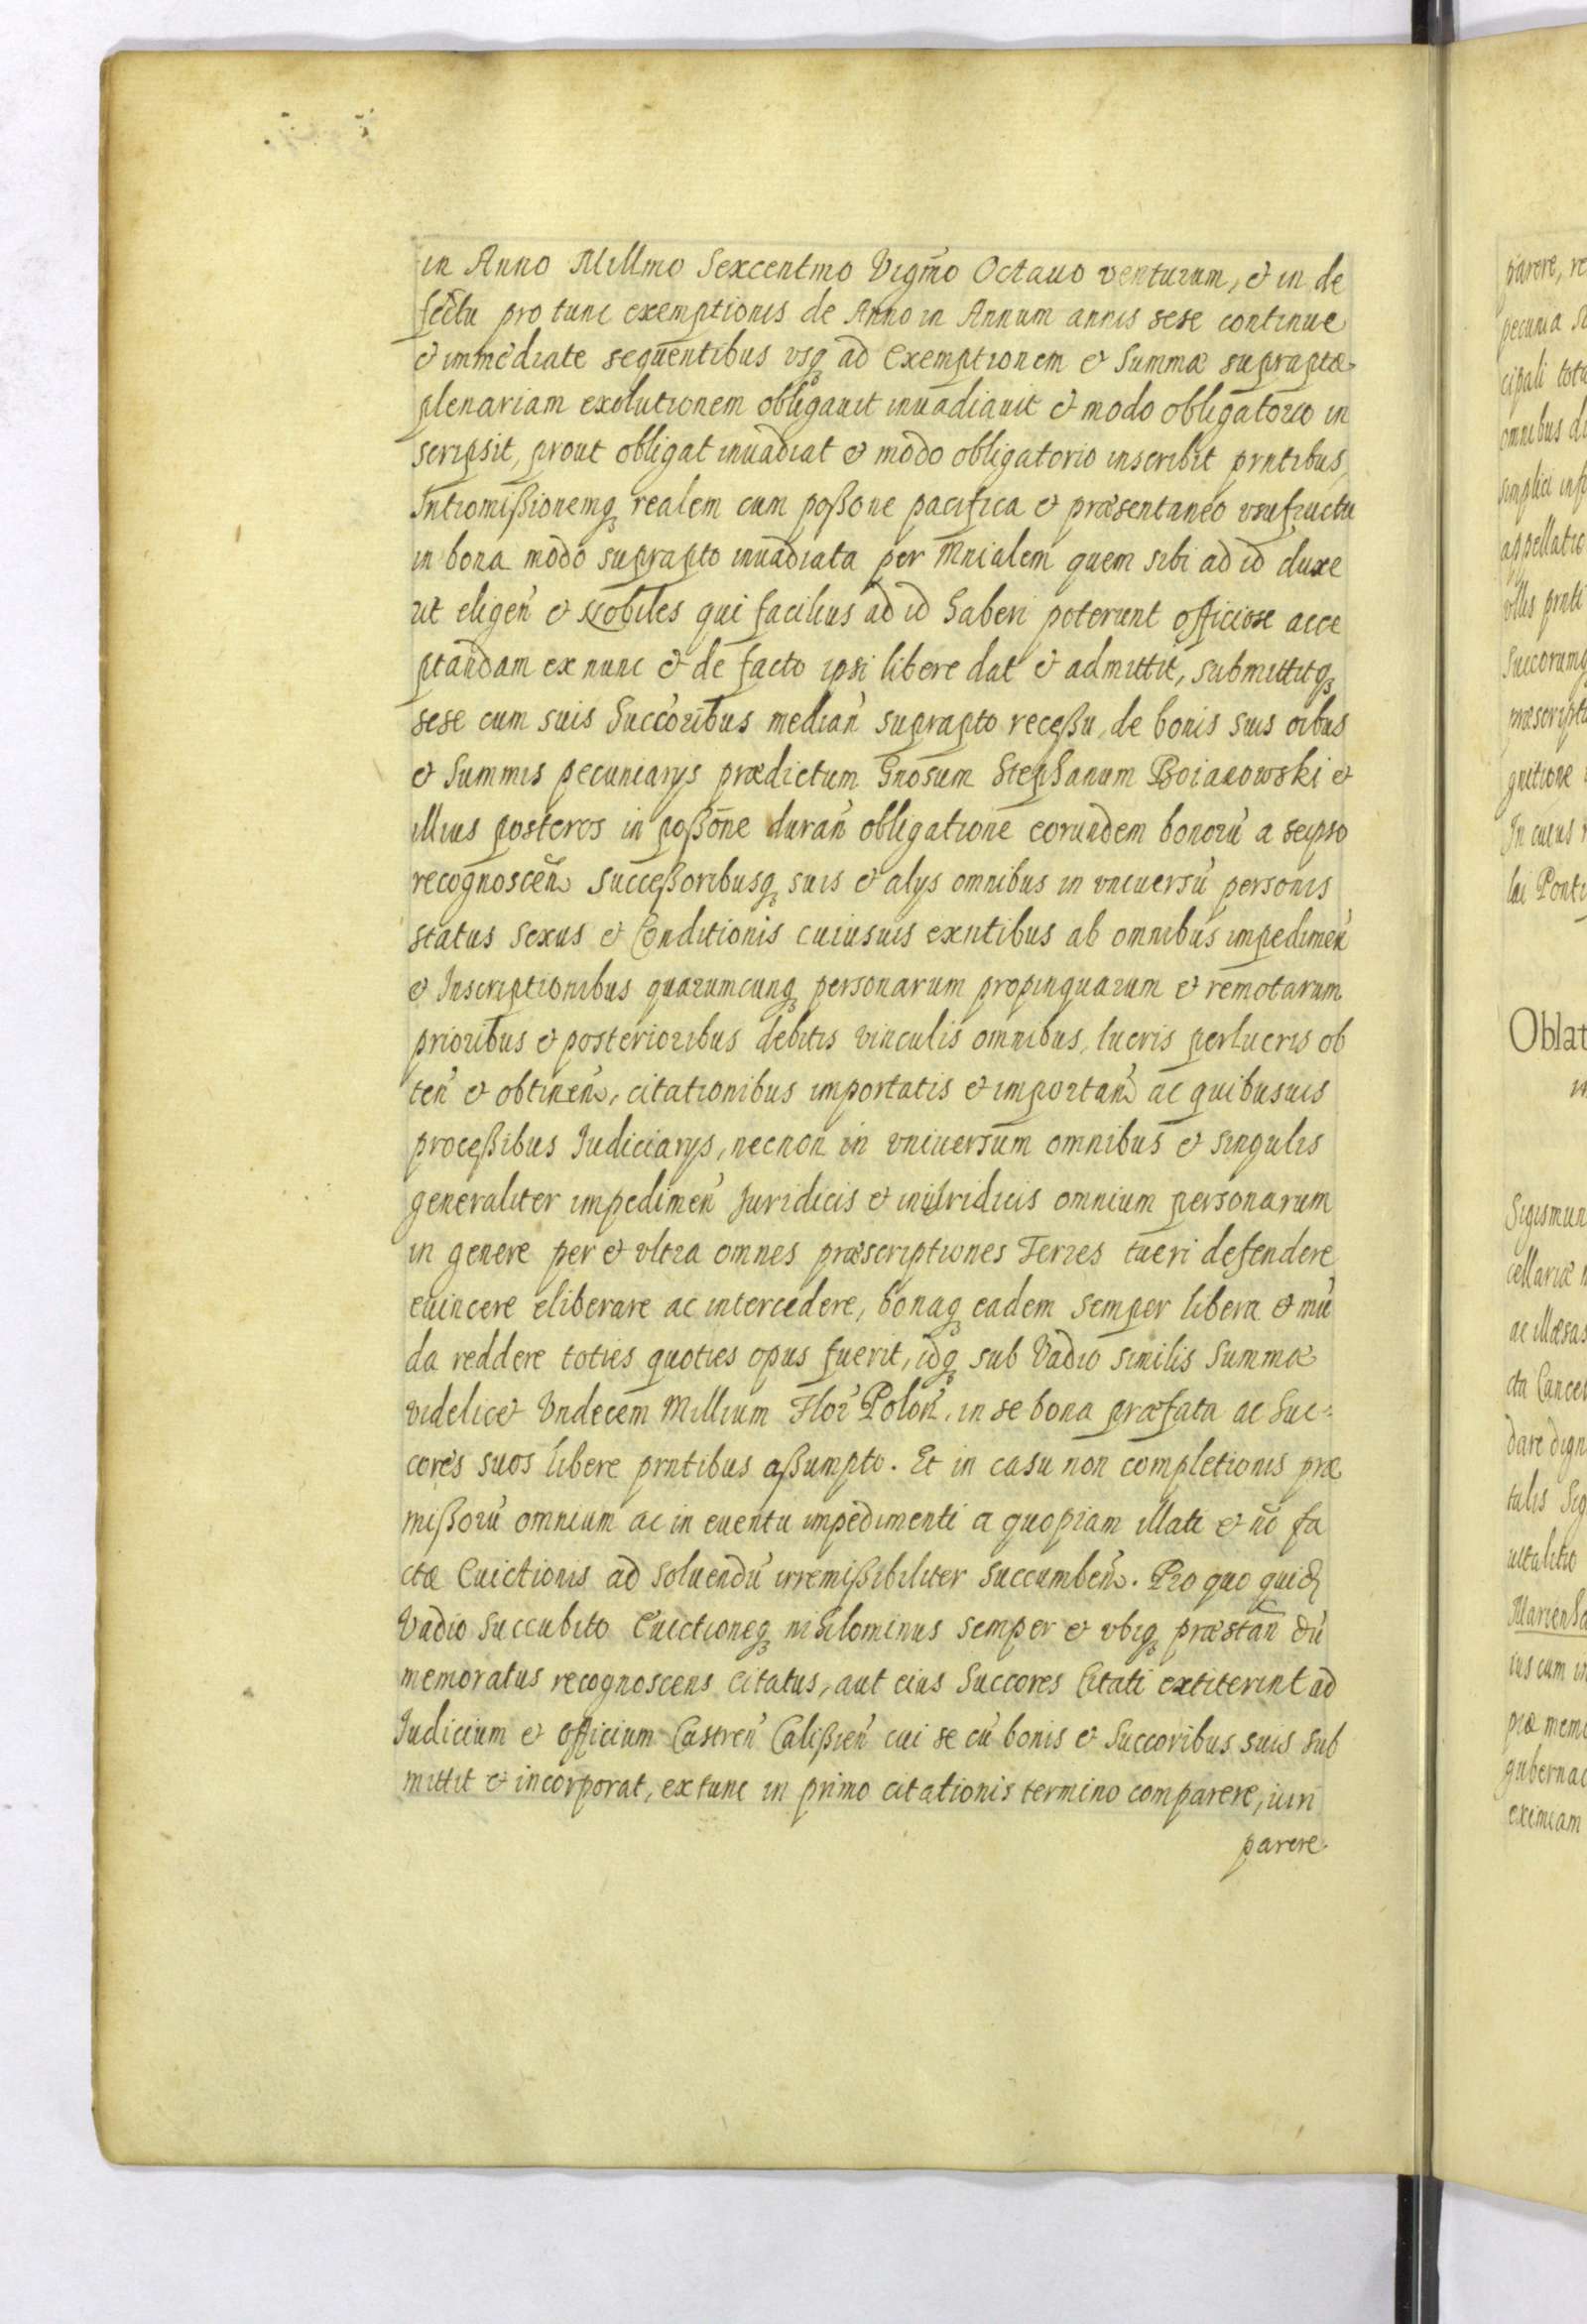 in Anno Millmo Sexcentmo Vigmo Octauo venturum, & in de
fectu pro tunc exemptionis de Anno in Annum annis sese continue
& immediate sequentibus vsq ad Exemptionem & Summæ supraptæ
plenariam exolutionem obligauit inuadiauit & modo obligatorio in
scripsit, prout obligat inuadiat & modo obligatorio inscribit prntibus,
Intromißionemq realem cum poßone pacifica & præsentaneo vsufructu
in bona modo suprapto inuadiata per Mnialem quem sibi ad id duxe
rit eligen & Nobiles qui facilius ad id haberi poterunt officiose acce
ptandam ex nunc & de facto ipsi libere dat & admittit, submittitq
sese cum suis Succoribus median suprapto receßu, de bonis suis oibus
& Summis pecuniarys prædictum Gnosum Stephanum Boiaxowski &
illius posteros in poßone duran obligatione eorundem bonoru a seipso
recognoscen Succeßoribusq suis & alys omnibus in vniuersu personis
status sexus & Conditionis cuiusuis exntibus ab omnibus impedimen
& Inscriptionibus quarumcunq personarum propinquarum & remotarum
prioribus & posterioribus debitis vinculis omnibus, lucris perlucris ob
ten & obtinen, citationibus importatis & importan ac quibusuis
proceßibus Iudiciarys, necnon in vniuersum omnibus & singulis
generaliter impedimen Iuridicis & iniuridicis omnium personarum
in genere per & vltra omnes præscriptiones Terres tueri defendere
euincere eliberare ac intercedere, bonaq eadem semper libera & mu
da reddere toties quoties opus fuerit, idq sub Vadio similis Summæ
videlicet Vndecem Millium Flor Polon, in se bona præfata ac Suc=
cores suos libere prntibus aßumpto. Et in casu non completionis præ
mißoru omnium ac in euentu impedimenti a quopiam illati & no fa
ctæ Euictionis ad soluendu irremißibiliter succumben. Pro quo quid
Vadio succubito Euictioneq nihilominus semper & vbiq præstan du
memoratus recognoscens citatus, aut eius Succores Citati extiterint ad
Iudicium & Officium Castren Calißien cui se cu bonis & Succoribus suis sub
mittit & incorporat, ex tunc in primo citationis termino comparere, iuri
parere
parere, re
pecunia
cipali
omnibus
simplici
Succorumq
In cuius
Oblat
Sigismun
cellariæ
ac illæsas
cta Cancel
dare dign
talis
Marienb
ius cum in
gubernac
eximiam